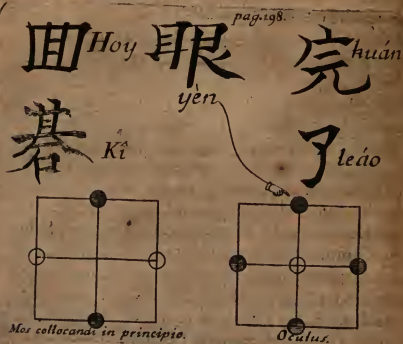 pag.198.
囲 Hoy 眼 yèn 完 huán
碁 Kî 了 leáo
Mos collocandi in principio. Oculus.